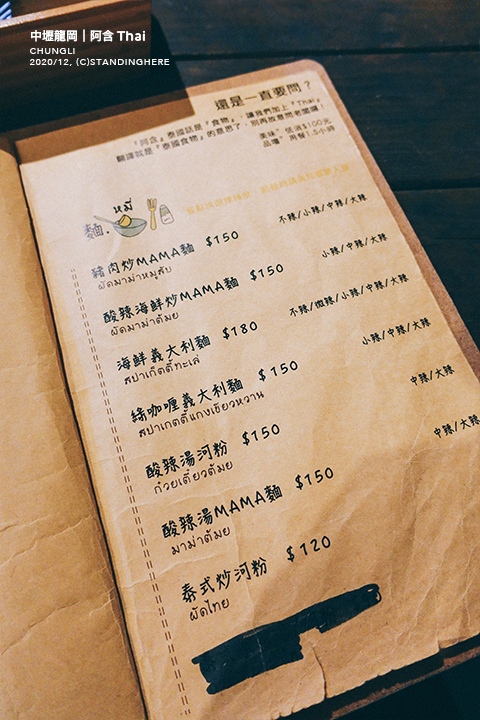 中壢龍岡｜阿含 Thai
CHUNGLI
2020/12, (C)STANDINGHERE
還是一直要問？
「阿含」泰國話是『食物』，讓我們加上『Thai』
翻譯就是『泰國食物』的意思了，別再故意問老闆囉！
美味"低消$100元
品嚐"用餐1.5小時
หมี่
麵.
豬肉炒MAMA麵 $150 不辣/小辣/中辣/大辣
ผัดมาม่าหมูสับ
酸辣海鮮炒MAMA麵 $150 小辣/中辣/大辣
ผัดมาม่าต้มยำ
海鮮義大利麵 $180 不辣/微辣/小辣/中辣/大辣
สปาเก็ตตี้ทะเล
綠咖喱義大利麵 $150 小辣/中辣/大辣
สปาเกตตี้แกงเขียวหวาน
酸辣湯河粉 $150 中辣/大辣
ก๋วยเตี๋ยวต้มยำ
酸辣湯MAMA麵 $150 中辣/大辣
มาม่าต้มยำ
泰式炒河粉 $120
ผัดไทย